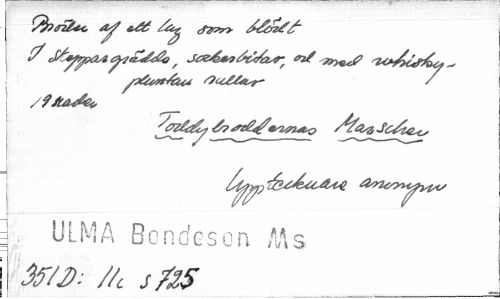 Bröder af ett lag som blödt
I steppargrädde, sockerbitar, och med whisky-
pluntan rullar
19 rader
Toddybroddernas Marscher
Upptecknare anonym
ULMA Bondeson Ms
351D: 11c s 725